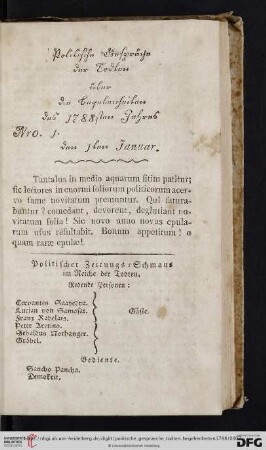 Politische Gespräche
der Todten
über
die Begebenheiten
des 1788sten Jahres
Nro. 1.
den 1ten Januar.
Tantalus in medio aquarum sitim patitur;
sic lectores in enormi foliorum politicorum acer-
vo fame novitatum premuntur. Qui satura-
buntur? comedant, devorent, deglutiant no-
vitatum folia! Sic novo anno novus epula-
rum usus resultabit. Bonum appetitum! o
quam raræ epulæ!
Politischer Zeitungs-Schmaus
im Reiche der Todten.
Redende Personen:
Cervantes Saavedra.
Lucian von Samosat.
Franz Rabelais.
Peter Aretino.
Sebaldus Nothanger.
Gröbel.
Gäste.
Bediente.
Sancho Pancha.
Demokrit.
DFG